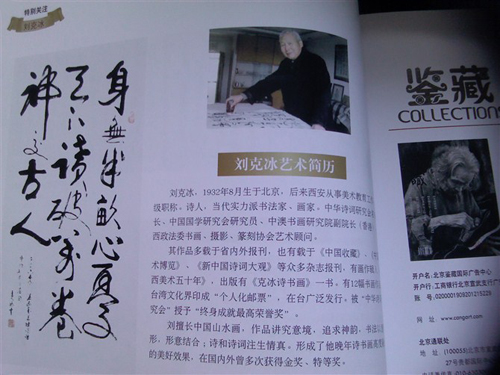 特别关注
刘克冰
身無半畝心憂
天下讀破万卷
神交古人
刘克冰艺术简历
刘克冰，1932年8月生于北京，后来西安从事美术教育工
级职称，诗人，当代实力派书法家、画家。中华诗词研究会
长、中国国学研究会研究员、中澳书画研究院副院长（香港
西政法委书画、摄影、篆刻协会艺术顾问。
其作品多载于省内外报刊，也有载于《中国收藏》、
术博览》、《新中国诗词大观》等众多杂志报刊，有画作
西美术五十年》，出版有《克冰诗书画》一书。有12幅书画
台湾文化界印成“个人化邮票”，在台广泛发行，被“中华
究会”授予“终身成就最高荣誉奖”。
刘擅长中国山水画，作品讲究意境，追求神韵，书法以
形，形意结合；诗和诗词注生情真，形成了他晚年诗书画
的美好效果，在国内外曾多次获得金奖、特等奖。
鉴藏
COLLECTIONS
开户名:北京鉴藏国际广告中心
开户行:工商银行北京宣武支行广
账 号:0200001909201215229
网 址:www.congcn1.com
北京通联处
地 址:(100053)北京市